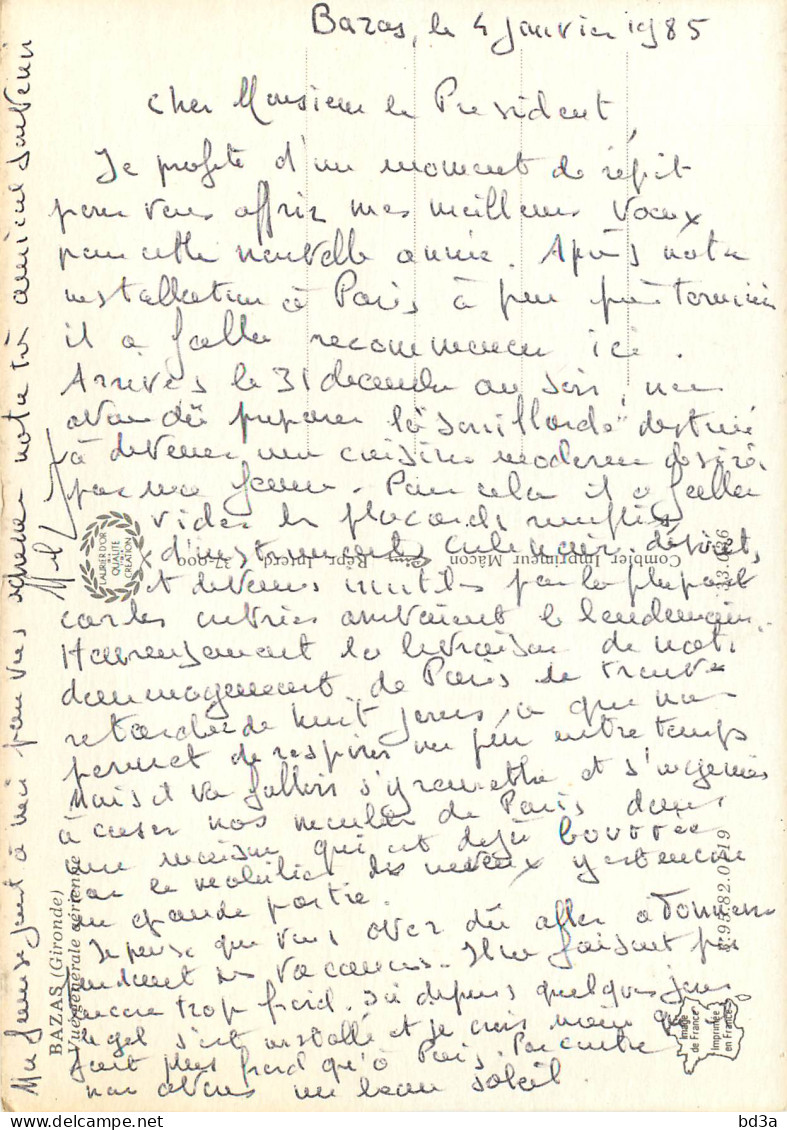 Bazas, le 4 janvier 1985
Cher Monsieur le Président,
Je profite d'un moment de répit
pour vous offrir mes meilleurs voeux
pour cette nouvelle année. Après notre
installation à Paris à peu près terminée
il a fallu recommencer ici.
Arrivés le 31 décembre au soir, nous
avons dû préparer la "souillarde" destinée
à devenir une cuisine moderne désirée
par ma femme. Pour cela il a fallu
vider les placards remplis
d'instruments culinaires désuets,
et devenus inutiles pour la plupart
car les ouvriers arrivaient le lendemain.
Heureusement la livraison de notre
déménagement de Paris se trouve
retardée de huit jours, ce que nous
permet de respirer un peu entre temps
Mais il va falloir s'y remettre et s'ingénier
à caser nos meubles de Paris dans
une maison qui est déjà bourrée
par le mobilier des neveux y est encore
en grande partie.
Je pense que vous avez dû aller à
pendant les vacances. Il ne faisait pas
encore trop froid. Ici depuis quelques jours
le gel s'est installé et je crois même qu'il
fait plus froid qu'à Paris. Par contre
nous avons un beau soleil
Ma femme se joint à moi pour vous exprimer notre très amical souvenir
BAZAS (Gironde)
Vue générale aérienne
LAURIER D'OR
QUALITÉ
CRÉATION
Combier Imprimeur Mâcon
Repr. Interd.
37.000
E.95.82.0.019
Image
de France
Imprimée
en France
bd3a